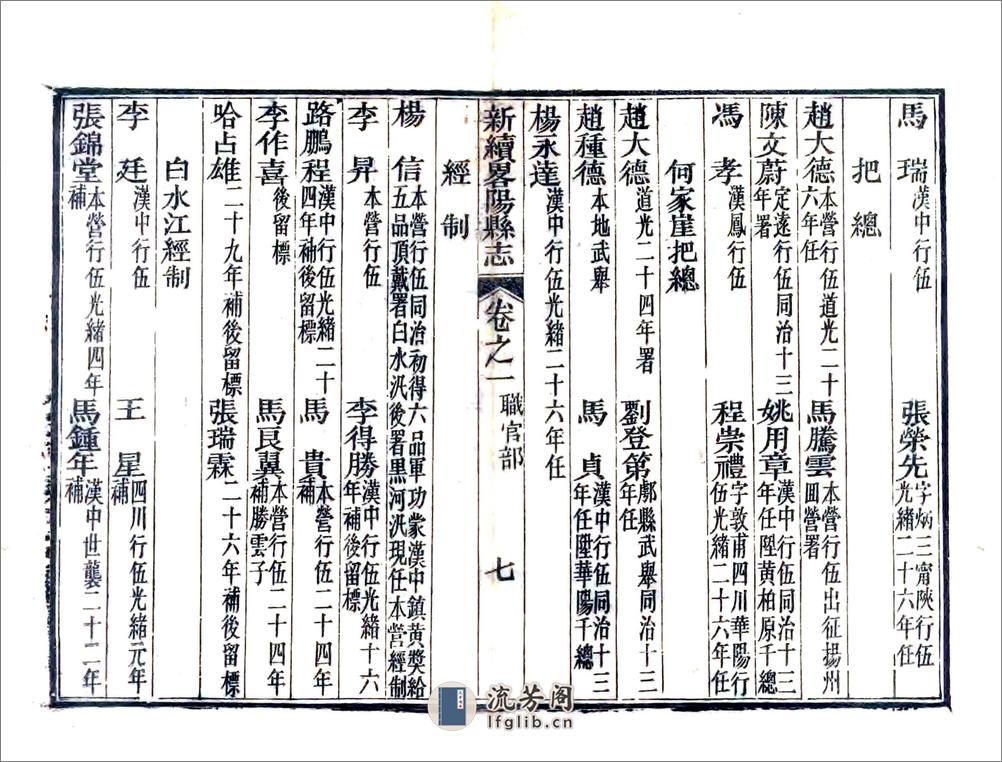 馬　瑞漢中行伍　張榮先字炳三甯陝行伍光緒二十六年任
把總
趙大德本營行伍道光二十六年任　馬騰雲本營行伍出征揚州回營署
陳文蔚定遠行伍同治十三年署　姚用章漢中行伍同治十三年任陞黃柏原千總
馮　孝漢鳳行伍　程崇禮字敦甫四川華陽行伍光緒二十六年任
何家崖把總
趙大德道光二十四年署　劉登第鄠縣武舉同治十三年任
趙種德本地武舉　馬　貞漢中行伍同治十三年任陞華陽千總
楊永達漢中行伍光緒二十六年任
新續畧陽縣志　卷之一　職官部　七
經制
楊　信本營行伍同治初得六品軍功蒙漢中鎮黃獎給五品頂戴署白水汛後署黑河汛現任本營經制
李　昇本營行伍　李得勝漢中行伍光緒十六年補後留標
路鵬程漢中行伍光緒二十四年補後留標　馬　貴本營行伍二十四年補
李作喜後留標　馬良翼本營行伍二十四年補勝雲子
哈占雄二十九年補後留標　張瑞霖二十六年補後留標
白水江經制
李　廷漢中行伍　王　星四川行伍光緒元年補
張錦堂本營行伍光緒四年補　馬鍾年漢中世襲二十二年補
流芳阁
lfglib.cn